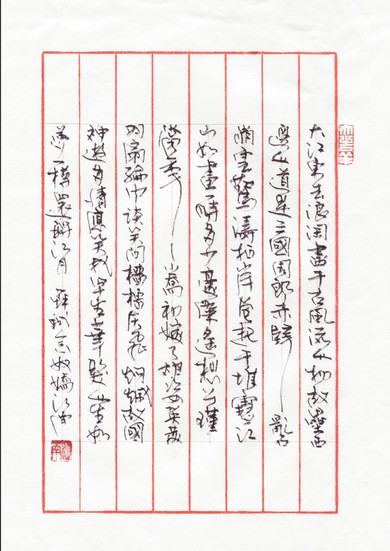 大江東去浪淘盡千古風流人物故壘西
邊人道是三國周郎赤壁亂石
崩雲驚濤拍岸卷起千堆雪江
山如畫一時多少豪傑遙想公瑾
當年小喬初嫁了雄姿英發
羽扇綸巾談笑間檣櫓灰飛煙滅故國
神遊多情應笑我早生華髮人生如
夢一樽還酹江月 蘇軾念奴嬌